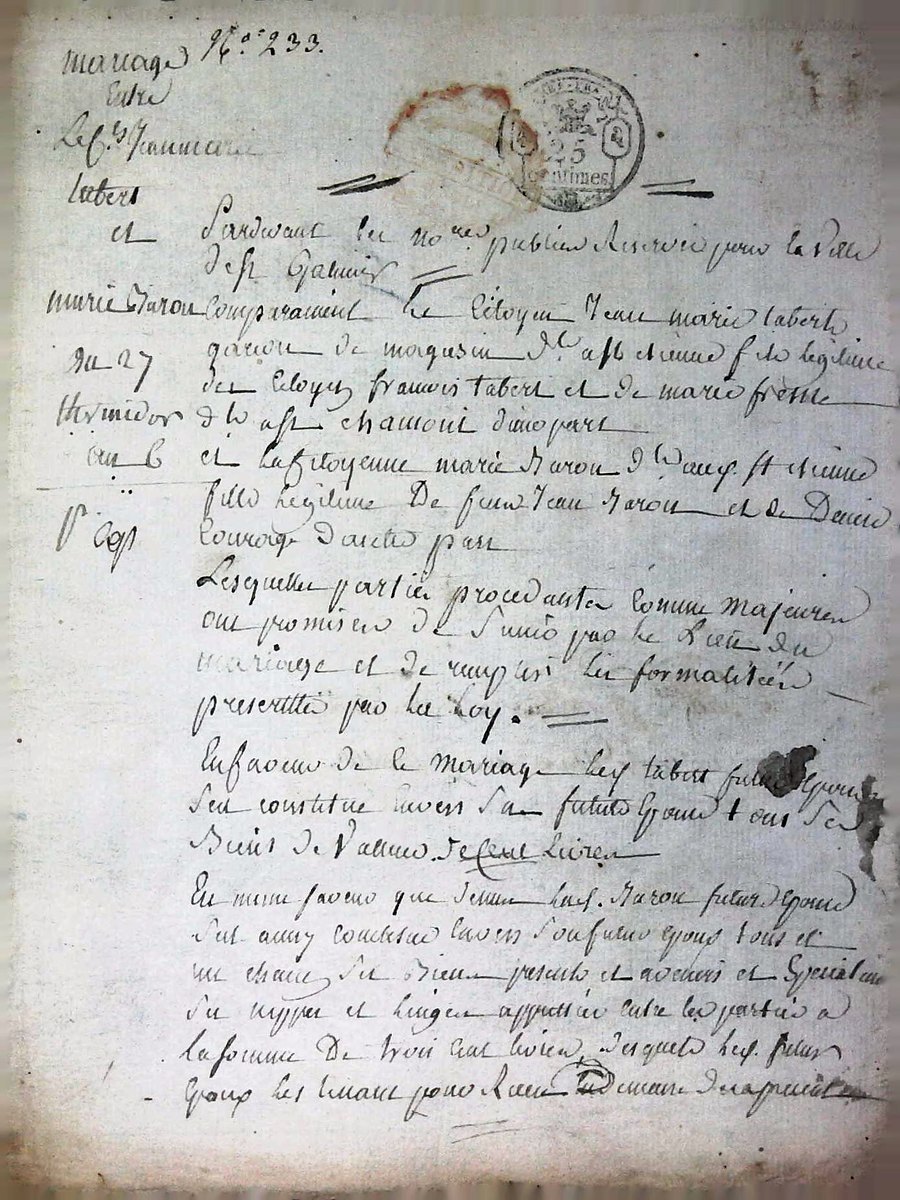 N.° 233.
mariage
Entre
Le C.en Jeanmarie
tabert
et
marie Baron
du 27
thermidor
an 6
25
centimes
Pardevant les no.res publics Reservés pour la Ville
de st Galmier
Comparaiment le Citoyen Jean marie tabert
garçon de magasin dt a st etienne fils légitime
des Citoyen francois tabert et de marie
dt a st chamont d'une part
et la Citoyenne marie Baron dt aussy st etienne
fille légitime De feux Jean Baron et de Denise
Courage d'autre part
Lesquelles parties procedantes Comme majeures
ont promises de s'unir par le Lien du
mariage et de remplir les formalitées
prescrittes par la Loy.
En faveur de ce mariage le C. tabert futur Epoux
s'en constitue Envers sa future Epouse tous ses
Biens de Valleur de Cent Livres
En même faveur que dessus la C. Baron future Epouse
s'est aussy constitué Envers son futur Epoux tous et
un chacun ses Biens presents et avenirs et
ses nippes et linges apprettiées entre les parties a
la somme De trois Cent livres, desquels le C. futur
Epoux les tenant pour